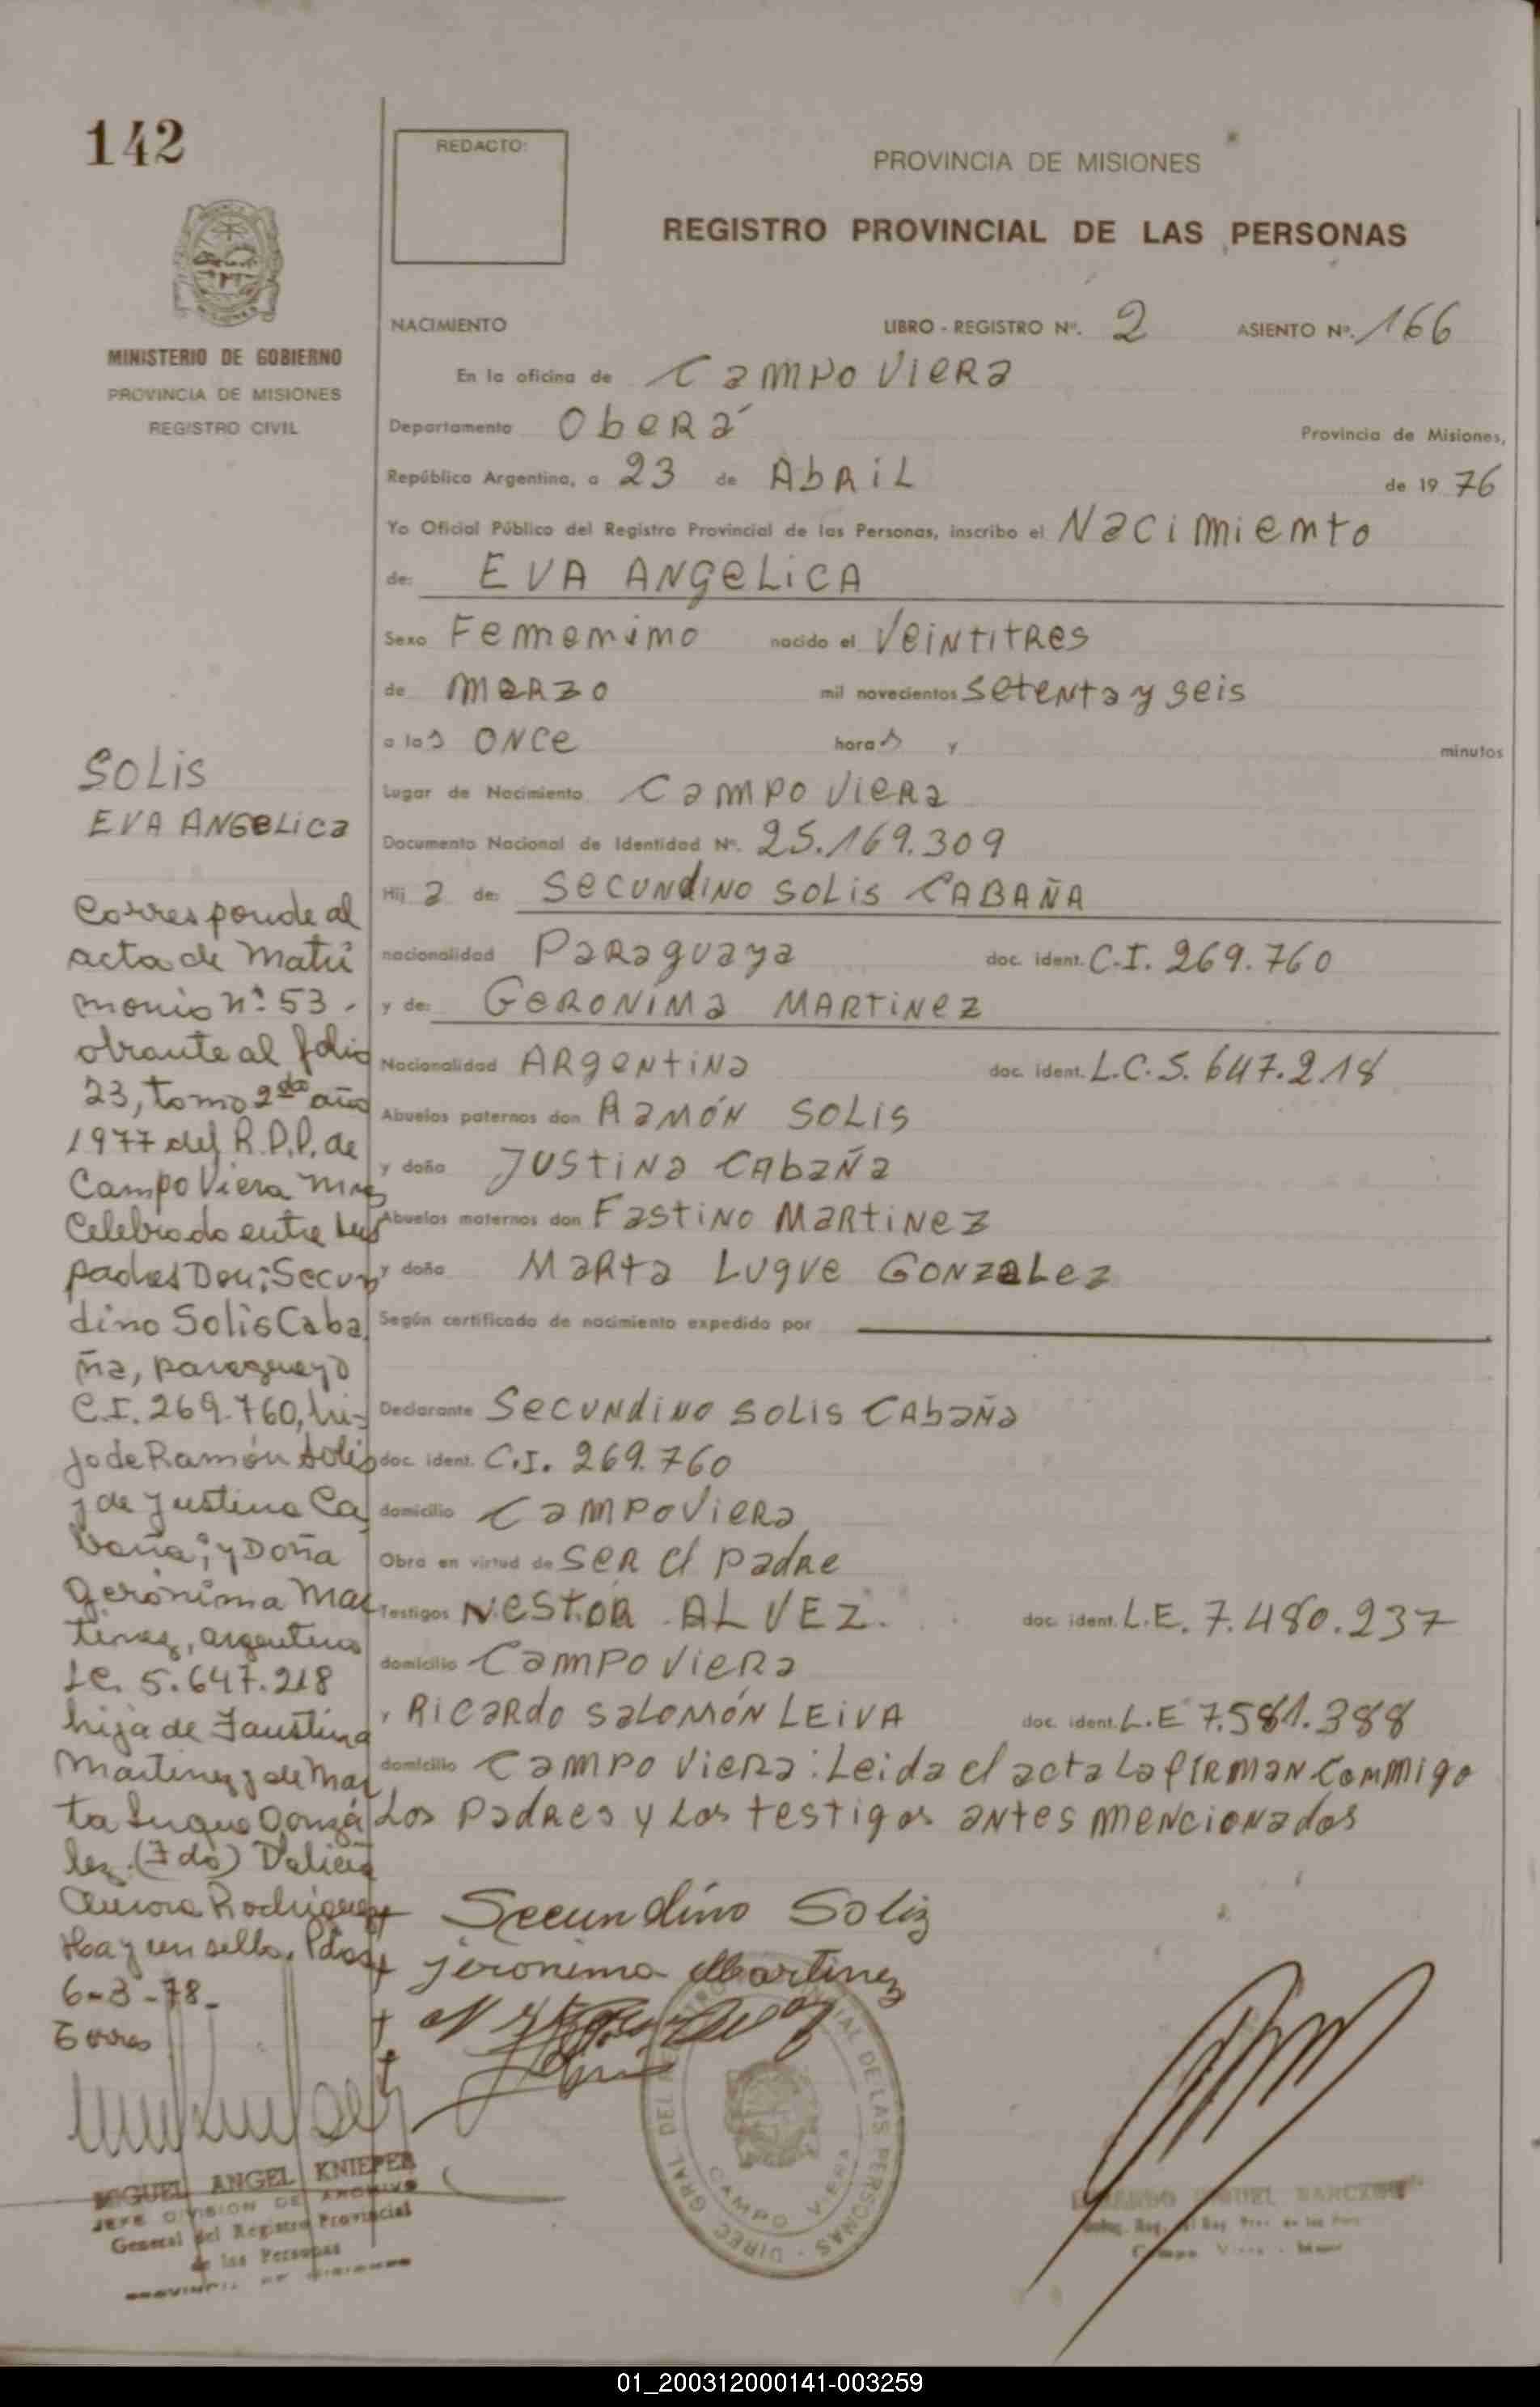 142
REDACTO:
PROVINCIA DE MISIONES
REGISTRO PROVINCIAL DE LAS PERSONAS
MINISTERIO DE GOBIERNO
PROVINCIA DE MISIONES
REGISTRO CIVIL
NACIMIENTO LIBRO - REGISTRO Nº. 2 ASIENTO Nº. 166
En la oficina de CAMPO VIERA
Departamento OberÁ Provincia de Misiones,
República Argentina, a 23 de AbRiL de 19 76
Yo Oficial Público del Registro Provincial de las Personas, inscribo el Nacimiento
de: EVA ANGELICA
Sexo Femenino nacido el VeiNtitRes
de maRzo mil novecientos SeteNta y seis
a las ONCe horas y minutos
Lugar de Nacimiento CAMPO VIERA
Documento Nacional de Identidad Nº. 25.169.309
Hij a de: SECUNdINO SOLIS CABAÑA
nacionalidad PaRaguaya doc. ident. C.I. 269.760
y de: GERONIMA MARTINEZ
Nacionalidad ARgeNtiNa doc. ident. L.C. 5.647.218
Abuelos paternos don RAMÓN SOLIS
y doña JUSTINA CAbaÑa
Abuelos maternos don FastiNo MartiNez
y doña MaRta LUQUE GONZALez
Según certificado de nacimiento expedido por
Declarante SECUNdINO SOLIS CAbaÑa
doc. ident. C.I. 269.760
domicilio CAMPO VIERA
Obra en virtud de SER el padRe
Testigos NESTOR ALVEZ. doc. ident. L.E. 7.480.237
domicilio CAMPO VIERA
y RICARdO SALOMÓN LEIVA doc. ident. L.E 7.581.388
domicilio CAMPO VIERA: Leida el acta La fiRman conmigo
Los padRes y Los testigos aNtes meNcioNados
SOLIS
EVA ANGELICA
Corresponde al
acta de Matri
monio nº 53.
obrante al folio
23, tomo 2do año
1977 del R.P.P. de
Campo Viera Mnes
Celebrado entre sus
padres Don: Secun
dino Solis Caba
ña, paraguayo
C.I. 269.760, hi-
jo de Ramón Solis
y de Justina Ca
baña; y Doña
Gerónima Mar
tinez, argentina
Lc. 5.647.218
hija de Faustino
Martinez y de Mar
ta Luque Gonzá
lez. (Fdo) Delicia
Aurora Rodriguez
Hay un sello. Pdas
6-3-78-
MIGUEL ANGEL KNIEPER
JEFE DIVISION DE ARCHIVO
General del Registro Provincial
de las Personas
PROVINCIA DE MISIONES
Secundino Solis
Jeronima Martinez
DIREC. GRAL. DEL PERSONAS
CAMPO VIERA
01_200312000141-003259